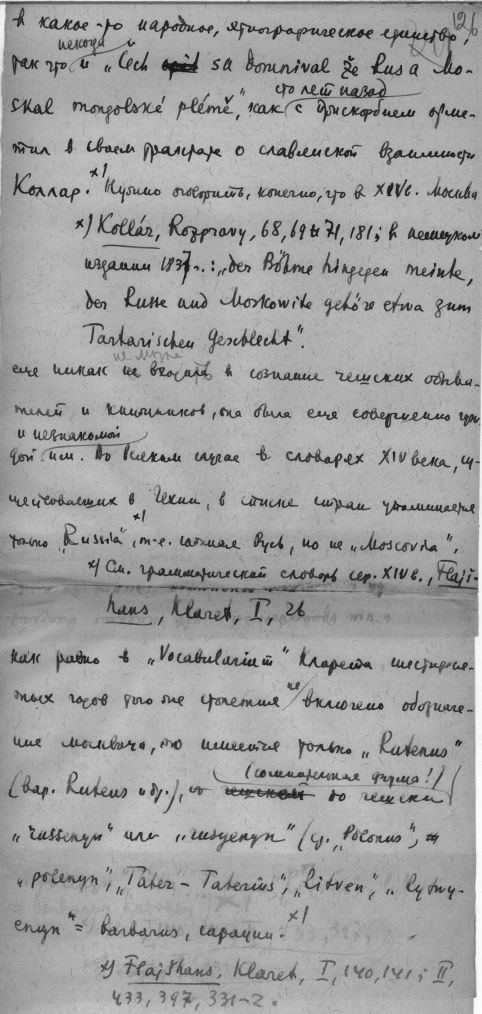 126
в какое-то народное, этнографическое единство,
так что некогда и "Čech sa domnival že Rus a Mo-
skal mongolské plémě", как сто лет назад с прискорбием отме-
тил в своем трактате о славянской взаимности
Коллар. х) Нужно оговорить, конечно, что в XIV в. Москва
х) Kollár, Rozpravy, 68, 69 71, 181; в немецком
издании 1837 г.: "der Böhme hingegen meinte,
der Russe und Moskowite gehöre etwa zum
Tartarischen Geschlecht".
еще никак не могла входить в сознание чешских обыва-
телей и книжников, она была еще совершенно чуж-
дой и незнакомой им. Во всяком случае в словарях XIV века, су-
ществовавших в Чехии, в списке стран упоминается
только "Russia", х) т-е. Русь, но не "Moscovia",
х) См. грамматический словарь сер. XIV в., Flajš-
hans, Klaret, I, 26
как равно в "Vocabularium" Кларета шестидеся-
тых годов того же столетия не включено обозначе-
ние москвича, но имеется только "Rutenus"
(вар. Ruteus и др.), по чешски (сомнительная форма!)
"russenyn" или "rusyenyn" (ср. "Polonus",
"polenyn", "Tater - Taterius", "litven", "lytwy-
enyn" = barbarus, сарацин. х)
х) Flajšhans, Klaret, I, 140, 141; II,
433, 397, 331-2.